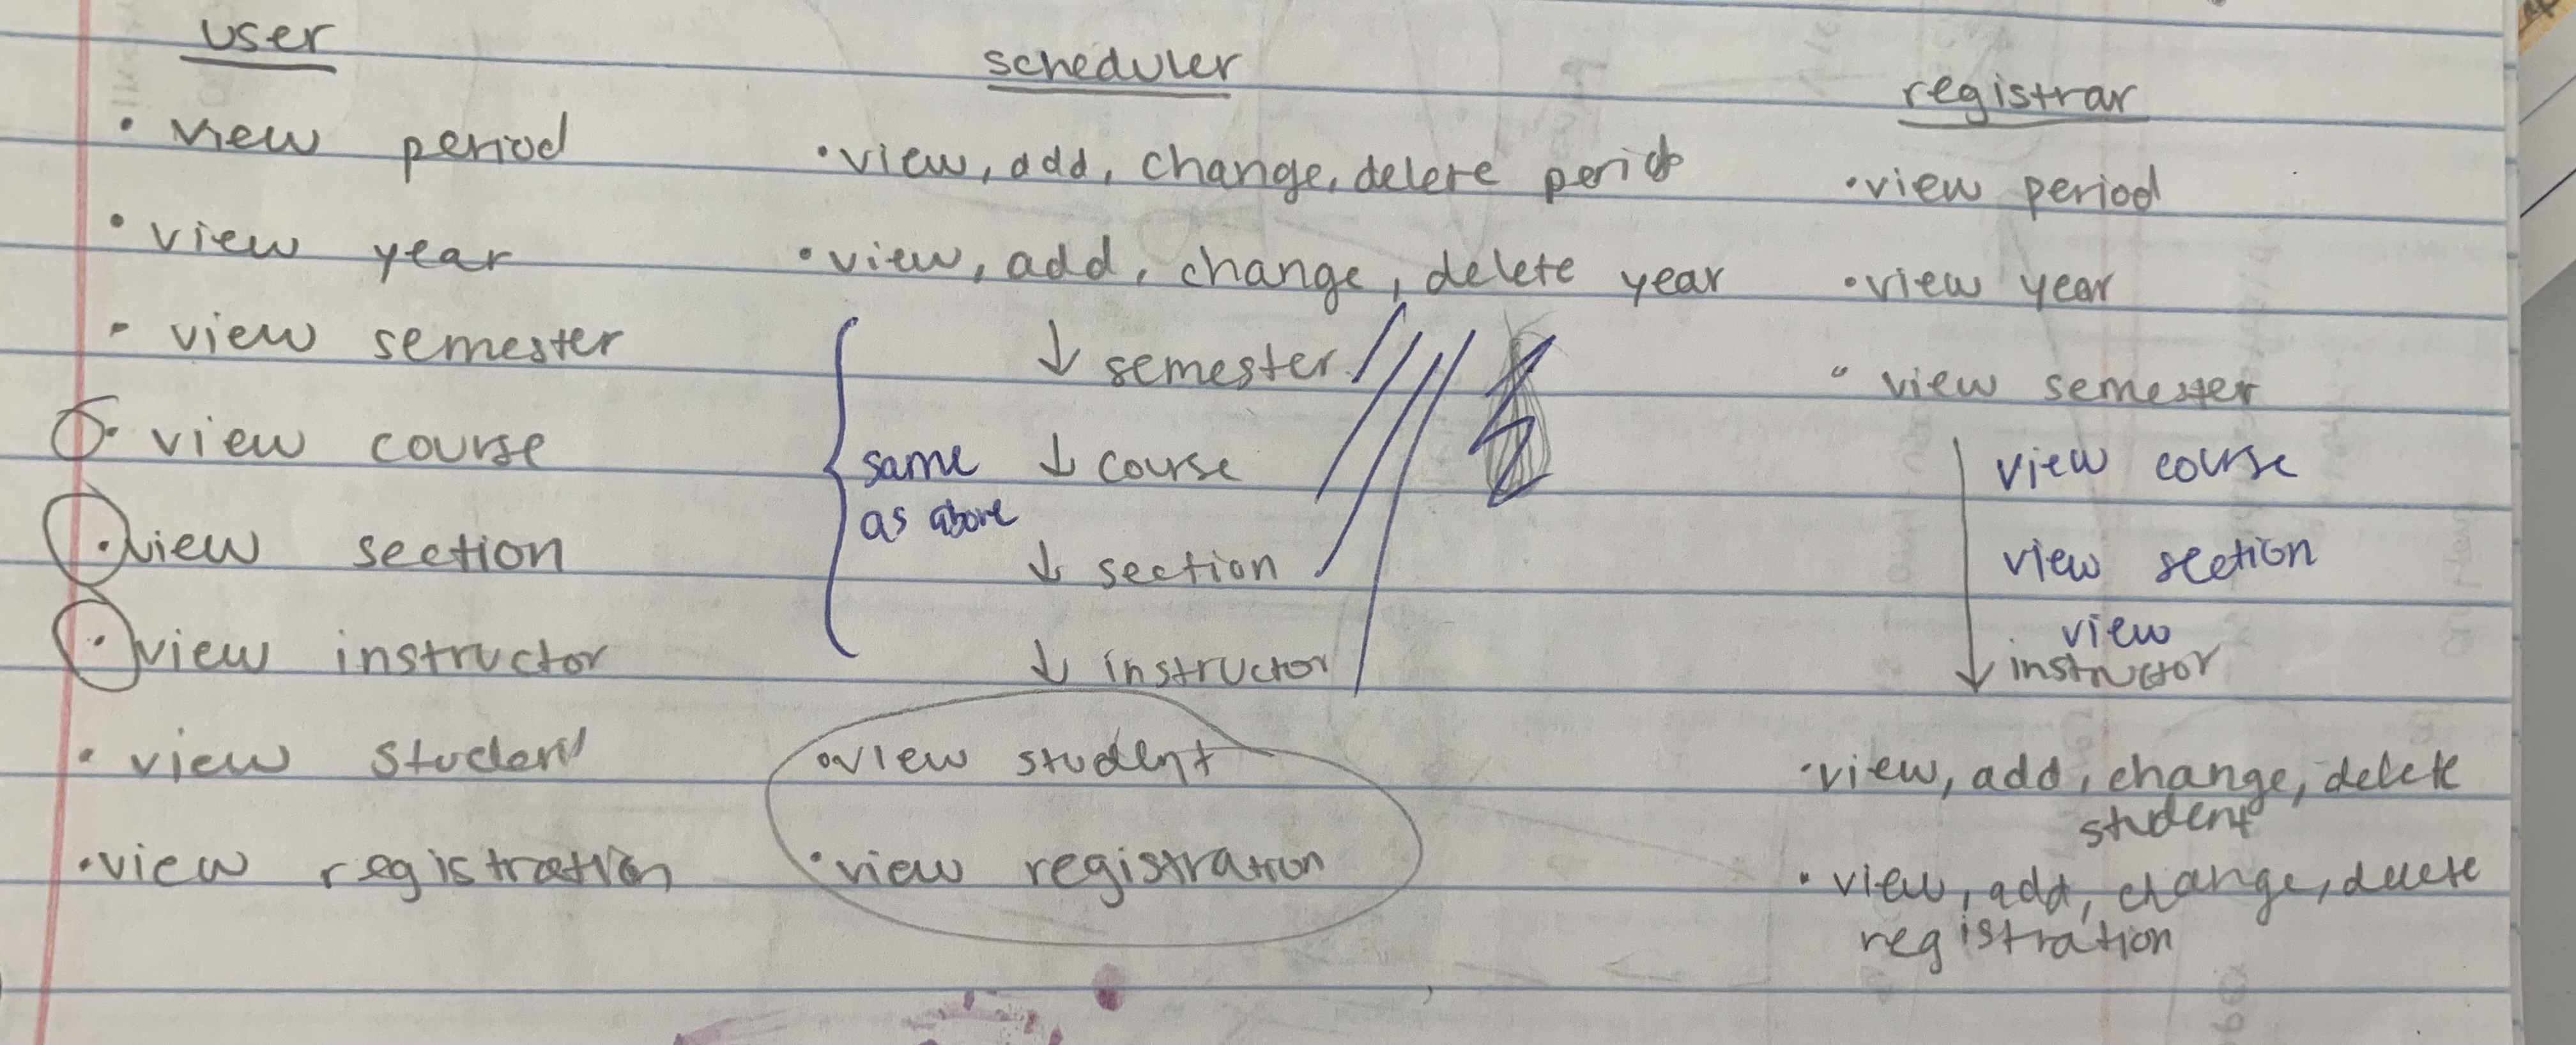 user
• view period
• view year
• view semester
• view course
• view section
• view instructor
• view student
• view registration
scheduler
• view, add, change, delete period
• view, add, change, delete year
↓ semester
same ↓ course
as above
↓ section
↓ instructor
• view student
• view registration
registrar
• view period
• view year
• view semester
view course
view section
view
instructor
• view, add, change, delete
student
• view, add, change, delete
registration